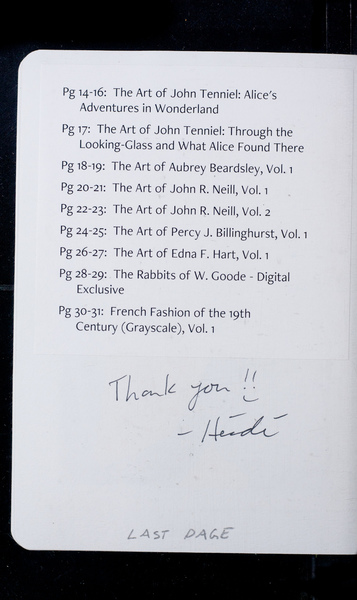 Pg 14-16: The Art of John Tenniel: Alice's
Adventures in Wonderland
Pg 17: The Art of John Tenniel: Through the
Looking-Glass and What Alice Found There
Pg 18-19: The Art of Aubrey Beardsley, Vol. 1
Pg 20-21: The Art of John R. Neill, Vol. 1
Pg 22-23: The Art of John R. Neill, Vol. 2
Pg 24-25: The Art of Percy J. Billinghurst, Vol. 1
Pg 26-27: The Art of Edna F. Hart, Vol. 1
Pg 28-29: The Rabbits of W. Goode - Digital
Exclusive
Pg 30-31: French Fashion of the 19th
Century (Grayscale), Vol. 1
Thank you !!
- Heidi
LAST PAGE